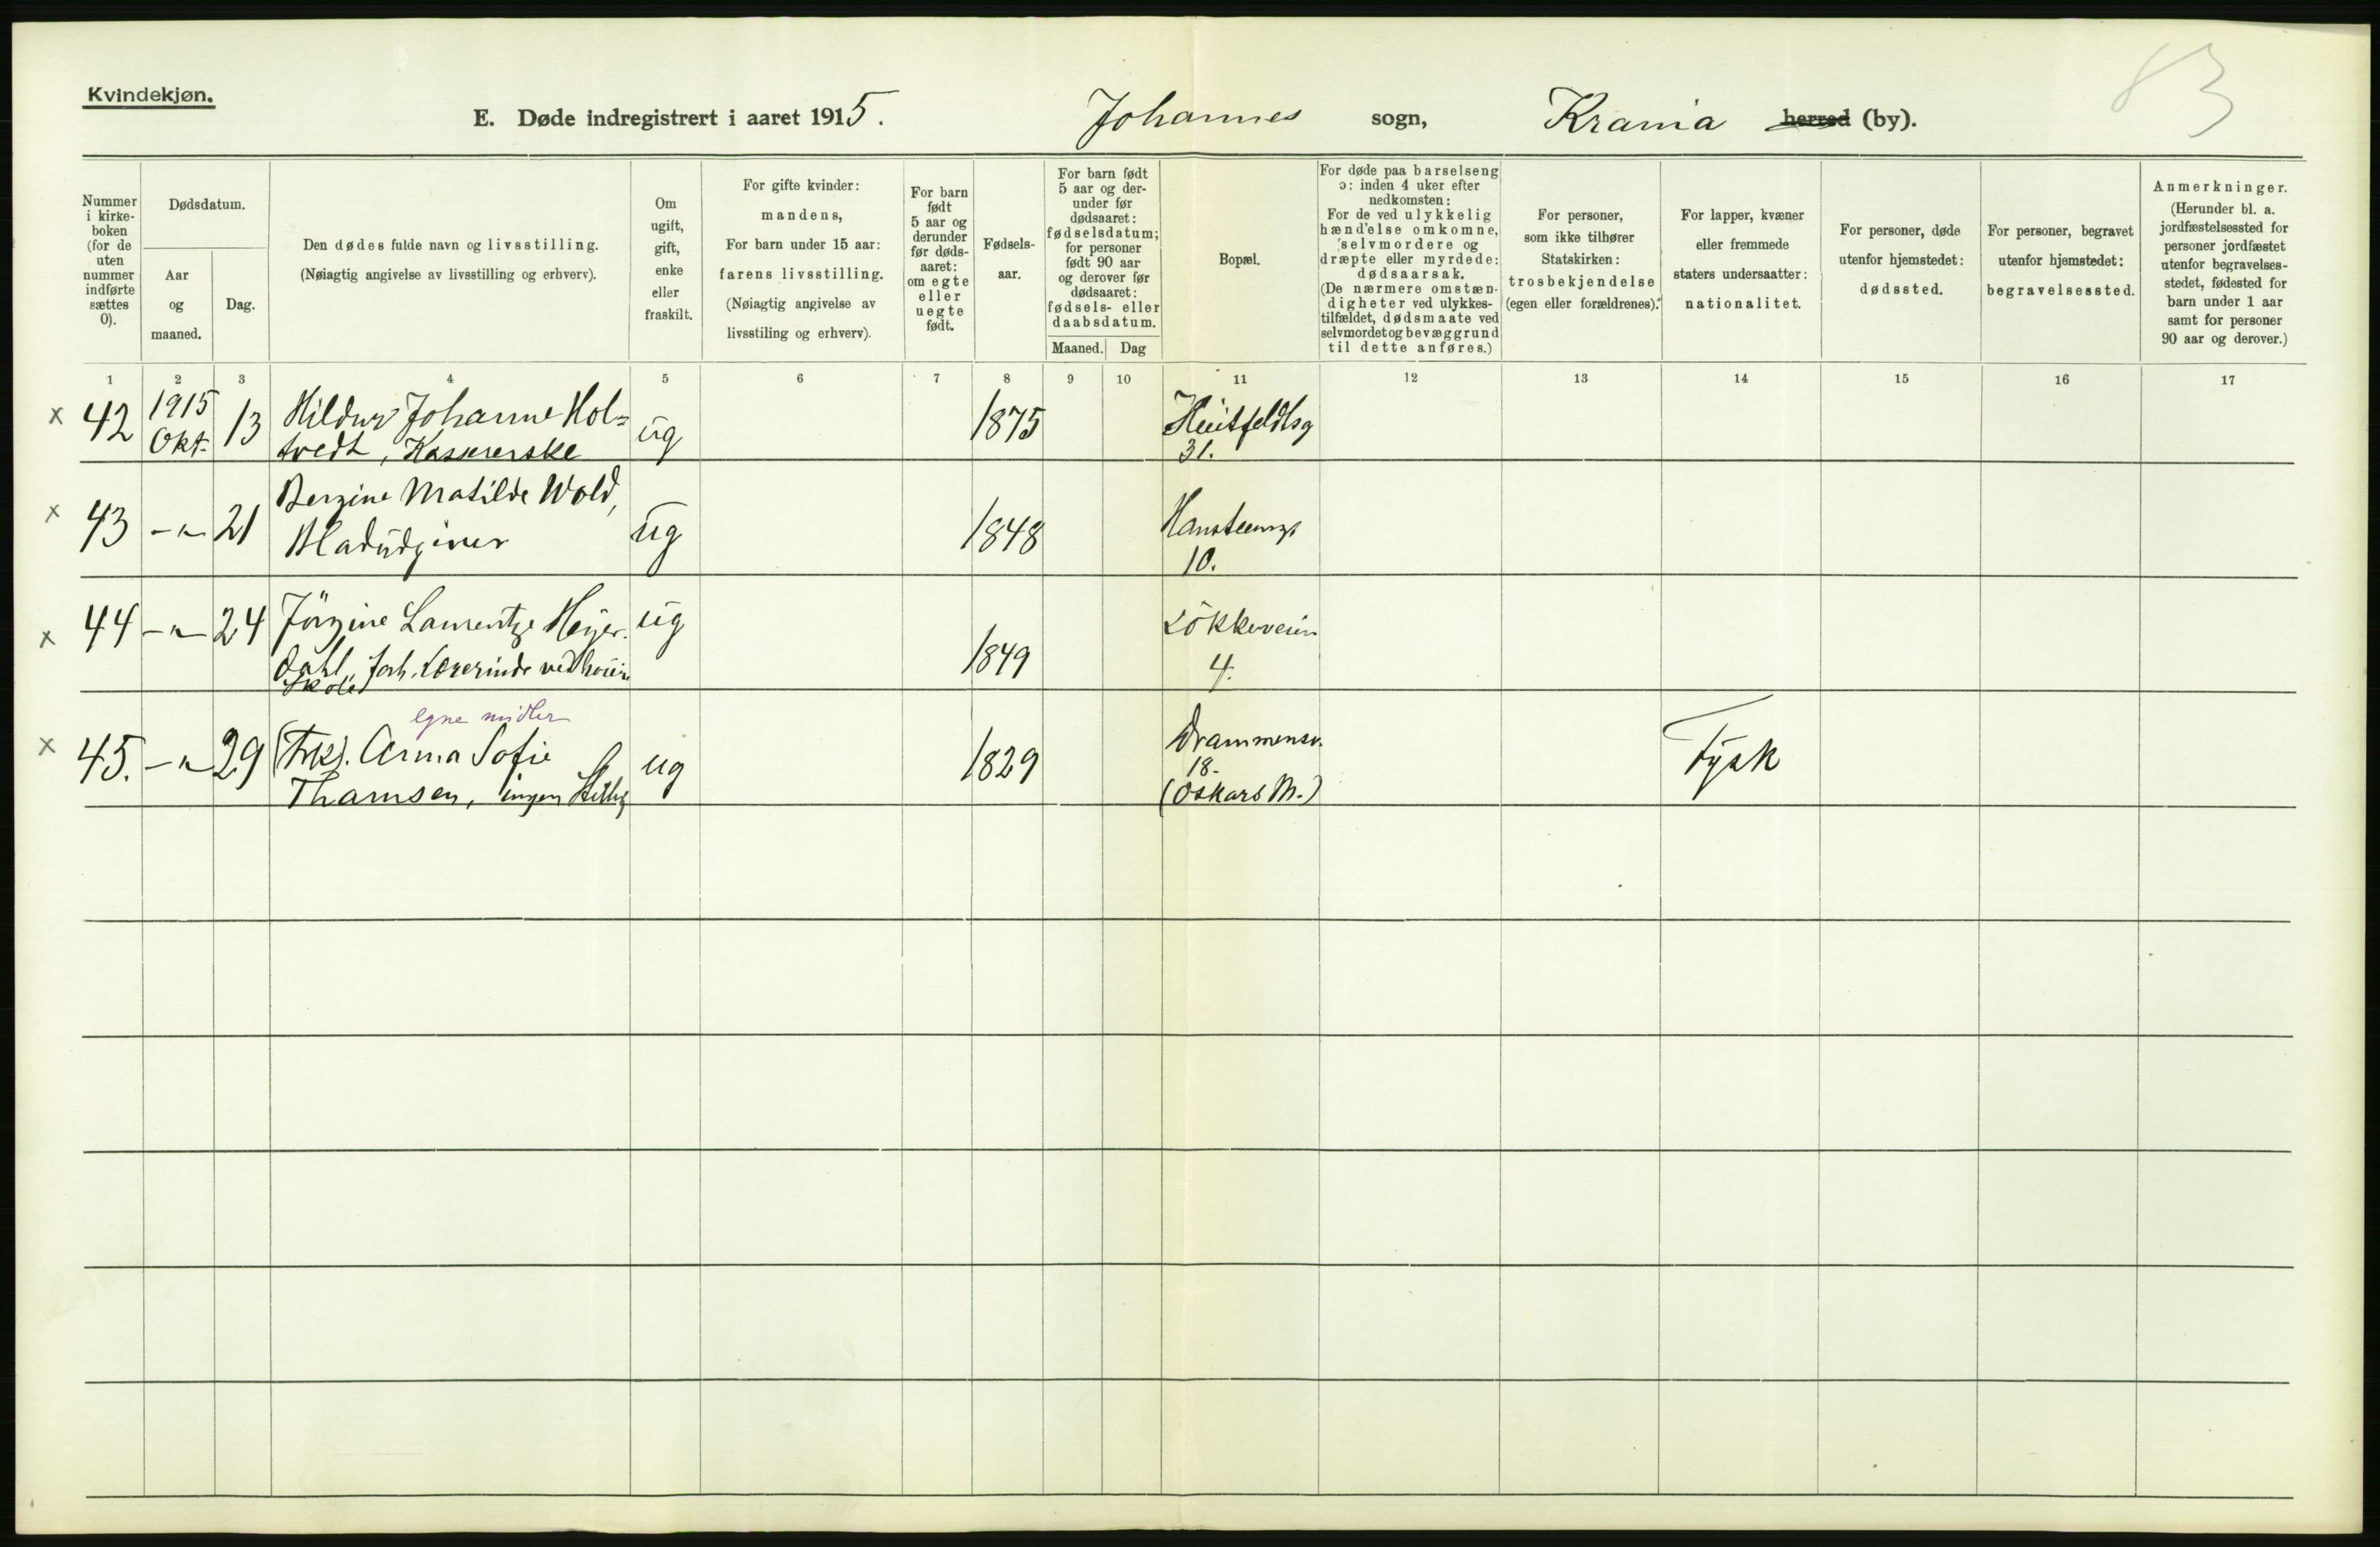 83
Kvindekjøn.
E. Døde indregistrert i aaret 1915. Johannes sogn, Krania herred (by).
Nummer i kirke-boken (for de uten nummer indførte sættes 0).
Dødsdatum.
Aar og maaned.
Dag.
Den dødes fulde navn og livsstilling.
(Nøiagtig angivelse av livsstilling og erhverv).
Om ugift, gift, enke eller fraskilt.
For gifte kvinder:
mandens,
For barn under 15 aar:
farens livsstilling.
(Nøiagtig angivelse av
livsstiling og erhverv).
For barn født 5 aar og derunder før døds-aaret: om egte eller uegte født.
Fødsels-aar.
For barn født 5 aar og der-under før dødsaaret: fødselsdatum; for personer født 90 aar og derover før dødsaaret: fødsels- eller daabsdatum.
Maaned. Dag
Bopæl.
For døde paa barselseng ɔ: inden 4 uker efter nedkomsten:
For de ved ulykkelig hændelse omkomne, selvmordere og dræpte eller myrdede: dødsaarsak.
(De nærmere omstæn-digheter ved ulykkes-tilfældet, dødsmaate ved selvmordet og bevæggrund til dette anføres.)
For personer,
som ikke tilhører
Statskirken:
trosbekjendelse
(egen eller forældrenes).
For lapper, kvæner
eller fremmede
staters undersaatter:
nationalitet.
For personer, døde
utenfor hjemstedet:
dødssted.
For personer, begravet
utenfor hjemstedet:
begravelsessted.
Anmerkninger.
(Herunder bl. a. jordfæstelsessted for personer jordfæstet utenfor begravelses-stedet, fødested for barn under 1 aar samt for personer 90 aar og derover.)
1 2 3 4 5 6 7 8 9 10 11 12 13 14 15 16 17
x 42 1915 Okt. 13 Hildur Johanne Hol=
tvedt, Kassererske ug 1875 Huitfeldtsg
31.
x 43 -"- 21 Bergine Matilde Wold,
Bladudgiver ug 1848 Hansteensgt
10.
x 44 -"- 24 Jörgine Laurentze Heyer-
dahl, forh. Lærerinde ved
Skole ug 1849 Lökkeveien
4.
egne midler
x 45. -"- 29 (Frk). Anna Sofie
Thamsen, ingen Stillg ug 1829 Drammensv.
18.
(Oskars M.) Tysk